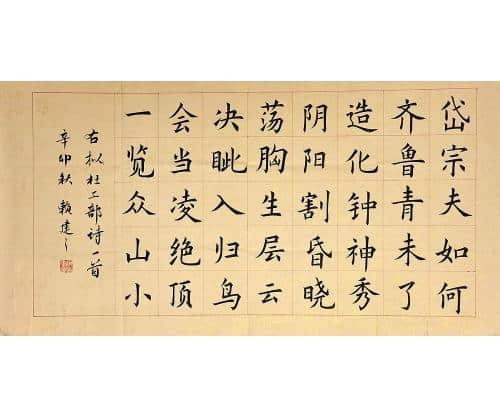 岱宗夫如何
齐鲁青未了
造化钟神秀
阴阳割昏晓
荡胸生层云
决眦入归鸟
会当凌绝顶
一览众山小
右拟杜工部诗一首
辛卯秋 赖建